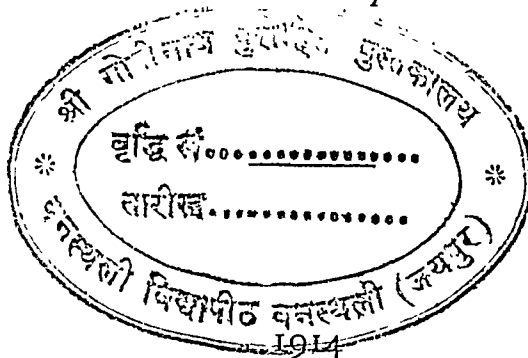 श्री गोपीनाथ पुरोहित पुस्तकालय
वृद्धि सं..................
तारीख..................
वनस्थली विद्यापीठ वनस्थली (जयपुर)
1914